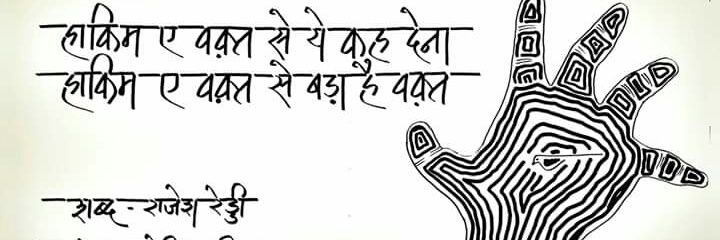 हाकिम ए वक़्त से ये कह देना
हाकिम ए वक़्त से बड़ा है वक़्त
शब्द - राजेश रेड्डी